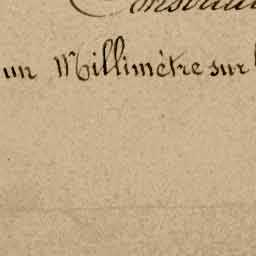 un Millimètre sur